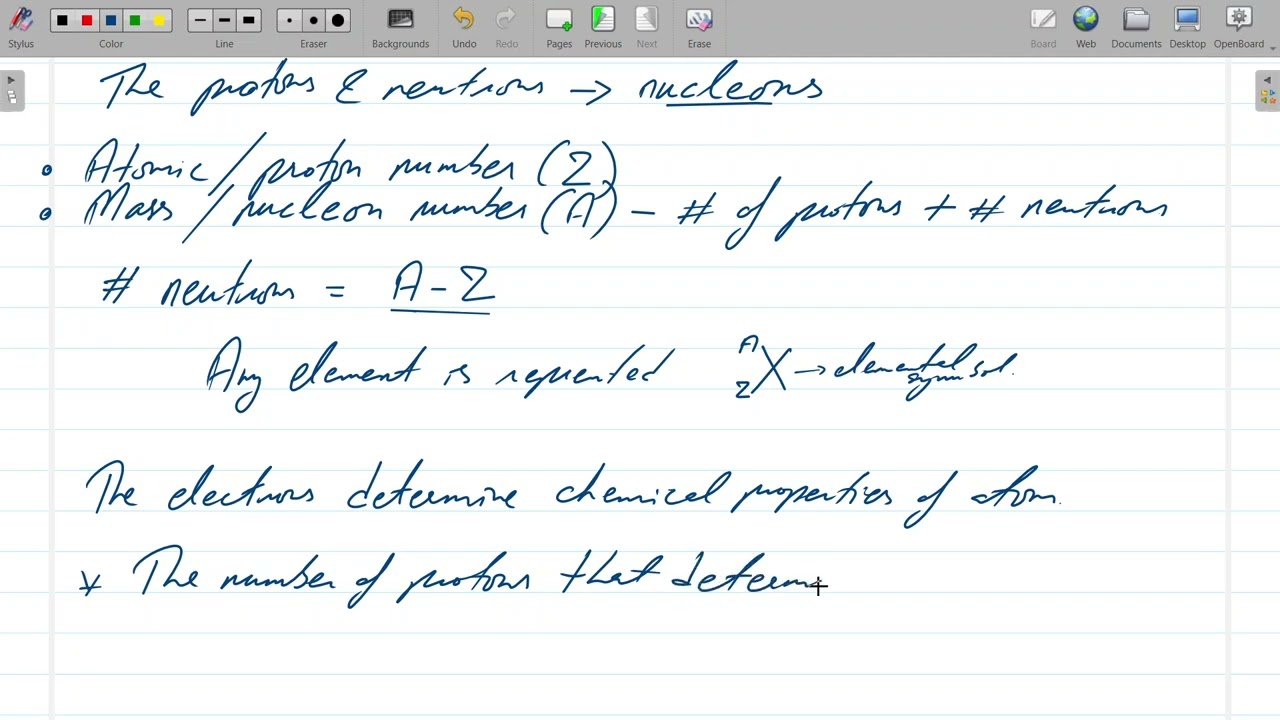 Stylus Color Line Eraser Backgrounds Undo Redo Pages Previous Next Erase Board Web Documents Desktop OpenBoard
The protons & neutrons → nucleons
• Atomic / proton number (Z)
• Mass / nucleon number (A) - # of protons + # neutrons
# neutrons = A - Z
Any element is repented A Z X → elemental symbol.
The electrons determine chemical properties of atom.
* The number of protons that determ